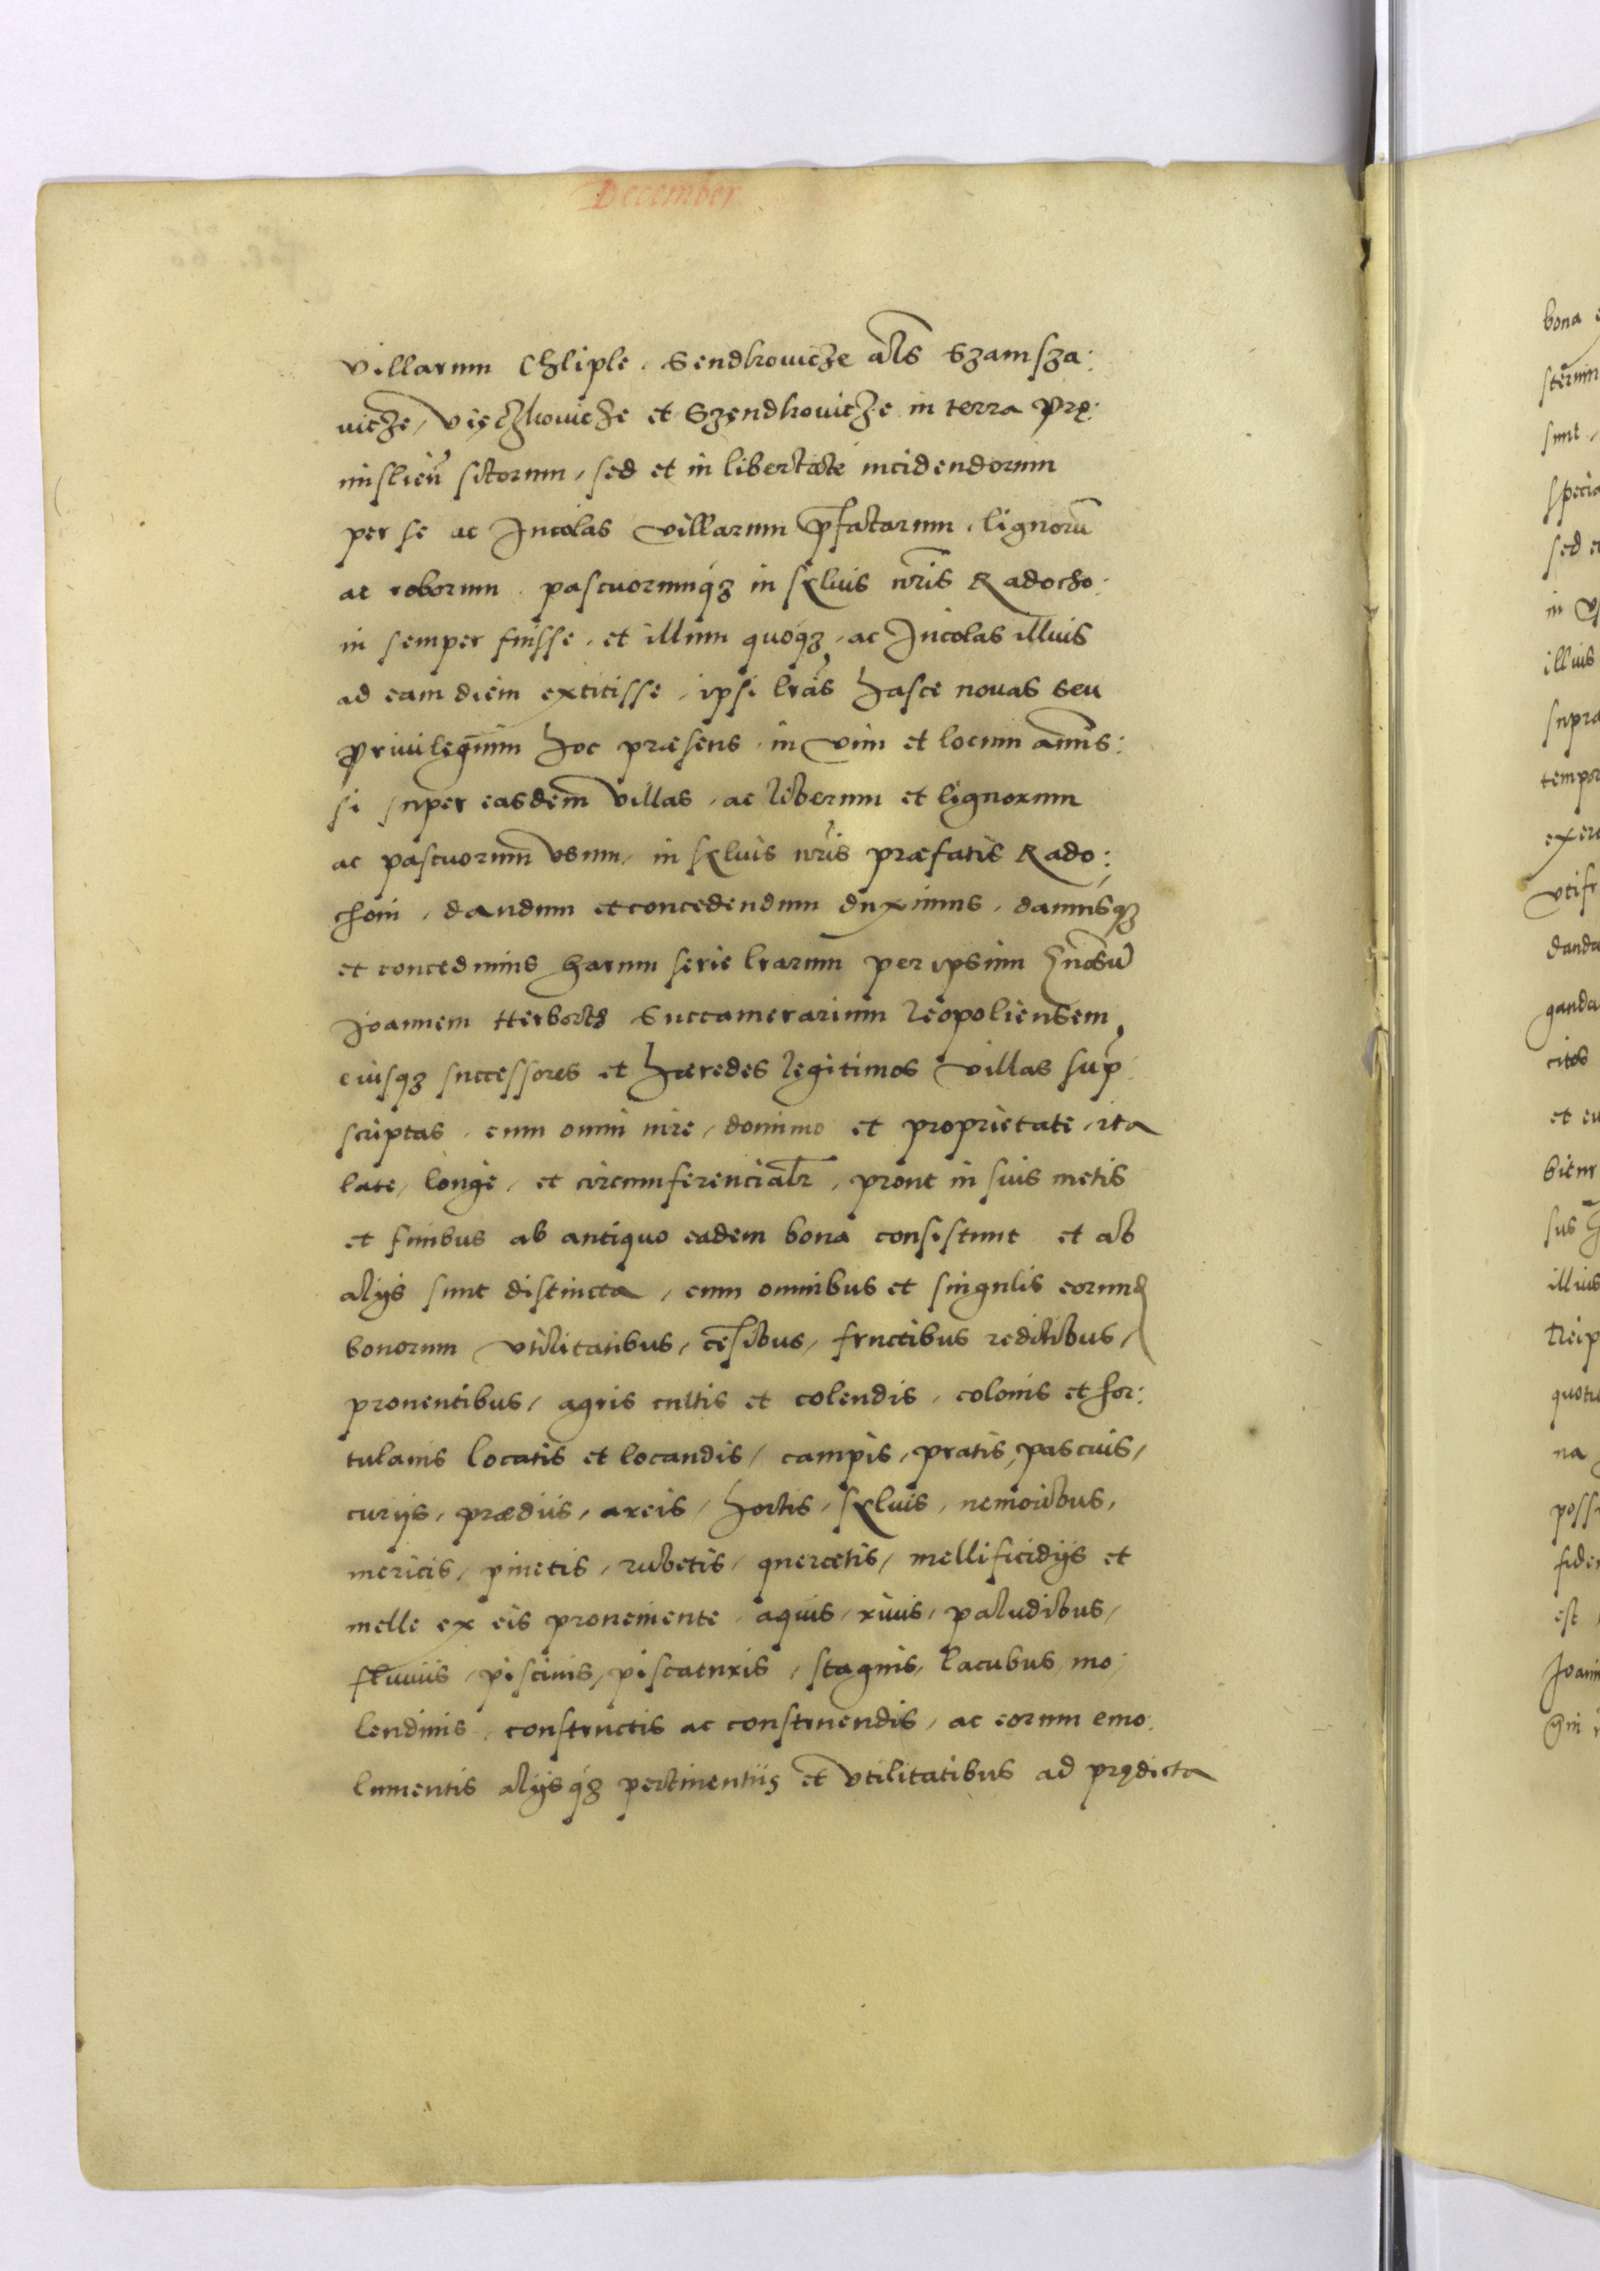 December
villarum Chliple. Sendkovicze als Szamsza:
vicze, Vięczkovicze et Szęndkovicze in terra Prę:
mislien̄ sitorum, sed et in libertate incidendorum
per se ac Incolas villarum p̄fatarum, lignorū
ac roborum, pascuorumq́ʒ in sylvis nr̄is Radocho:
in semper fuisse, et illum quoq́ʒ, ac Incolas illius
ad eam diem extitisse, ipsi lrās hasce novas seu
Privilegium hoc præsens, in vim et locum amīs:
si super easdem villas, ac liberum et lignorum
ac pascuorum vsum, in sylvis nr̄is præfatis Rado:
choin, dandum et concedendum duximus, damusq́ʒ
et concedimus harum serie lrarum per ipsum
Joannem Herborth Succamerarium Leopoliensem,
eiusqʒ successores et hæredes legitimos villas sup̄:
scriptas, cum omni iure, dominio et proprietate, ita
late, longe, et circumferencialr̄, prout in suis metis
et finibus ab antiquo eadem bona consistunt et ab
alijs sunt distincta, cum omnibus et singulis eorumd
bonorum vtilitatibus, cēsibus, fructibus reditibus,
proventibus, agris cultis et colendis, colonis et hor:
tulanis locatis et locandis, campis, pratis, pascuis,
curijs, prædiis, areis, hortis, sylvis, nemoribus,
mericis, pinetis, rubetis, quercetis, mellificidijs et
melle ex eis proveniente, aquis, rivis, paludibus,
fluviis, piscinis, piscaturis, stagnis, lacubus, mo:
lendinis, constructis ac construendis, ac eorum emo:
lumentis alijsq́ʒ pertinentiis et vtilitatibus ad prędicta